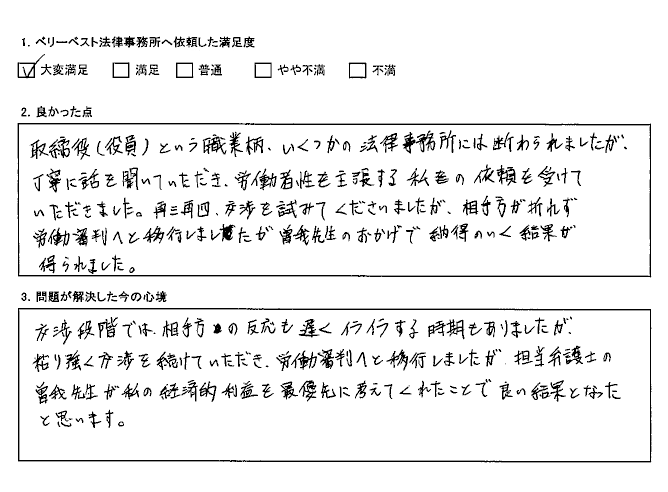 1. ベリーベスト法律事務所へ依頼した満足度
大変満足 満足 普通 やや不満 不満
2. 良かった点
取締役(役員)という職業柄、いくつかの法律事務所には断わられましたが、
丁寧に話を聞いていただき、労働者性を主張する私の依頼を受けて
いただきました。再三再四、交渉を試みてくださいましたが、相手方が折れず
労働審判へと移行しましたが曽我先生のおかげで納得のいく結果が
得られました。
3. 問題が解決した今の心境
交渉段階では、相手方の反応も遅くイライラする時期もありましたが、
粘り強く交渉を続けていただき、労働審判へと移行しましたが、担当弁護士の
曽我先生が私の経済的利益を最優先に考えてくれたことで良い結果となった
と思います。